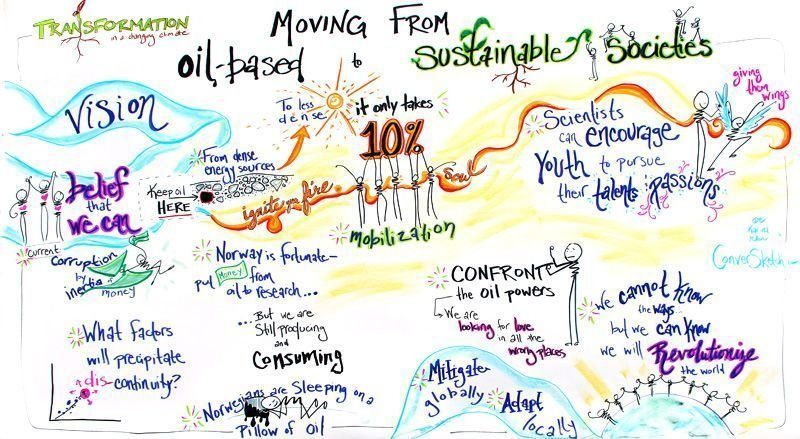 TRANSFORMATION
in a changing climate
MOVING FROM
oil-based to Sustainable Societies
Vision
belief
that
we can
From dense
energy sources
To less
dense
Keep oil
HERE
ignite fire
it only takes
10%
mobilization
Soul
Scientists
can encourage
Youth to pursue
their talents passions
giving
them
wings
current
Corruption
by
inertia
money
Norway is fortunate-
put Money from
oil to research...
...But we are
Still producing
and
Consuming
What factors
will precipitate
discontinuity?
Norwegians are Sleeping on a
Pillow of Oil
CONFRONT
the oil powers
We are
looking for love
in all the
wrong places
Mitigate
globally
Adapt
locally
We cannot know
the ways...
but we can know
we will Revolutionize
the world
ConverSketch